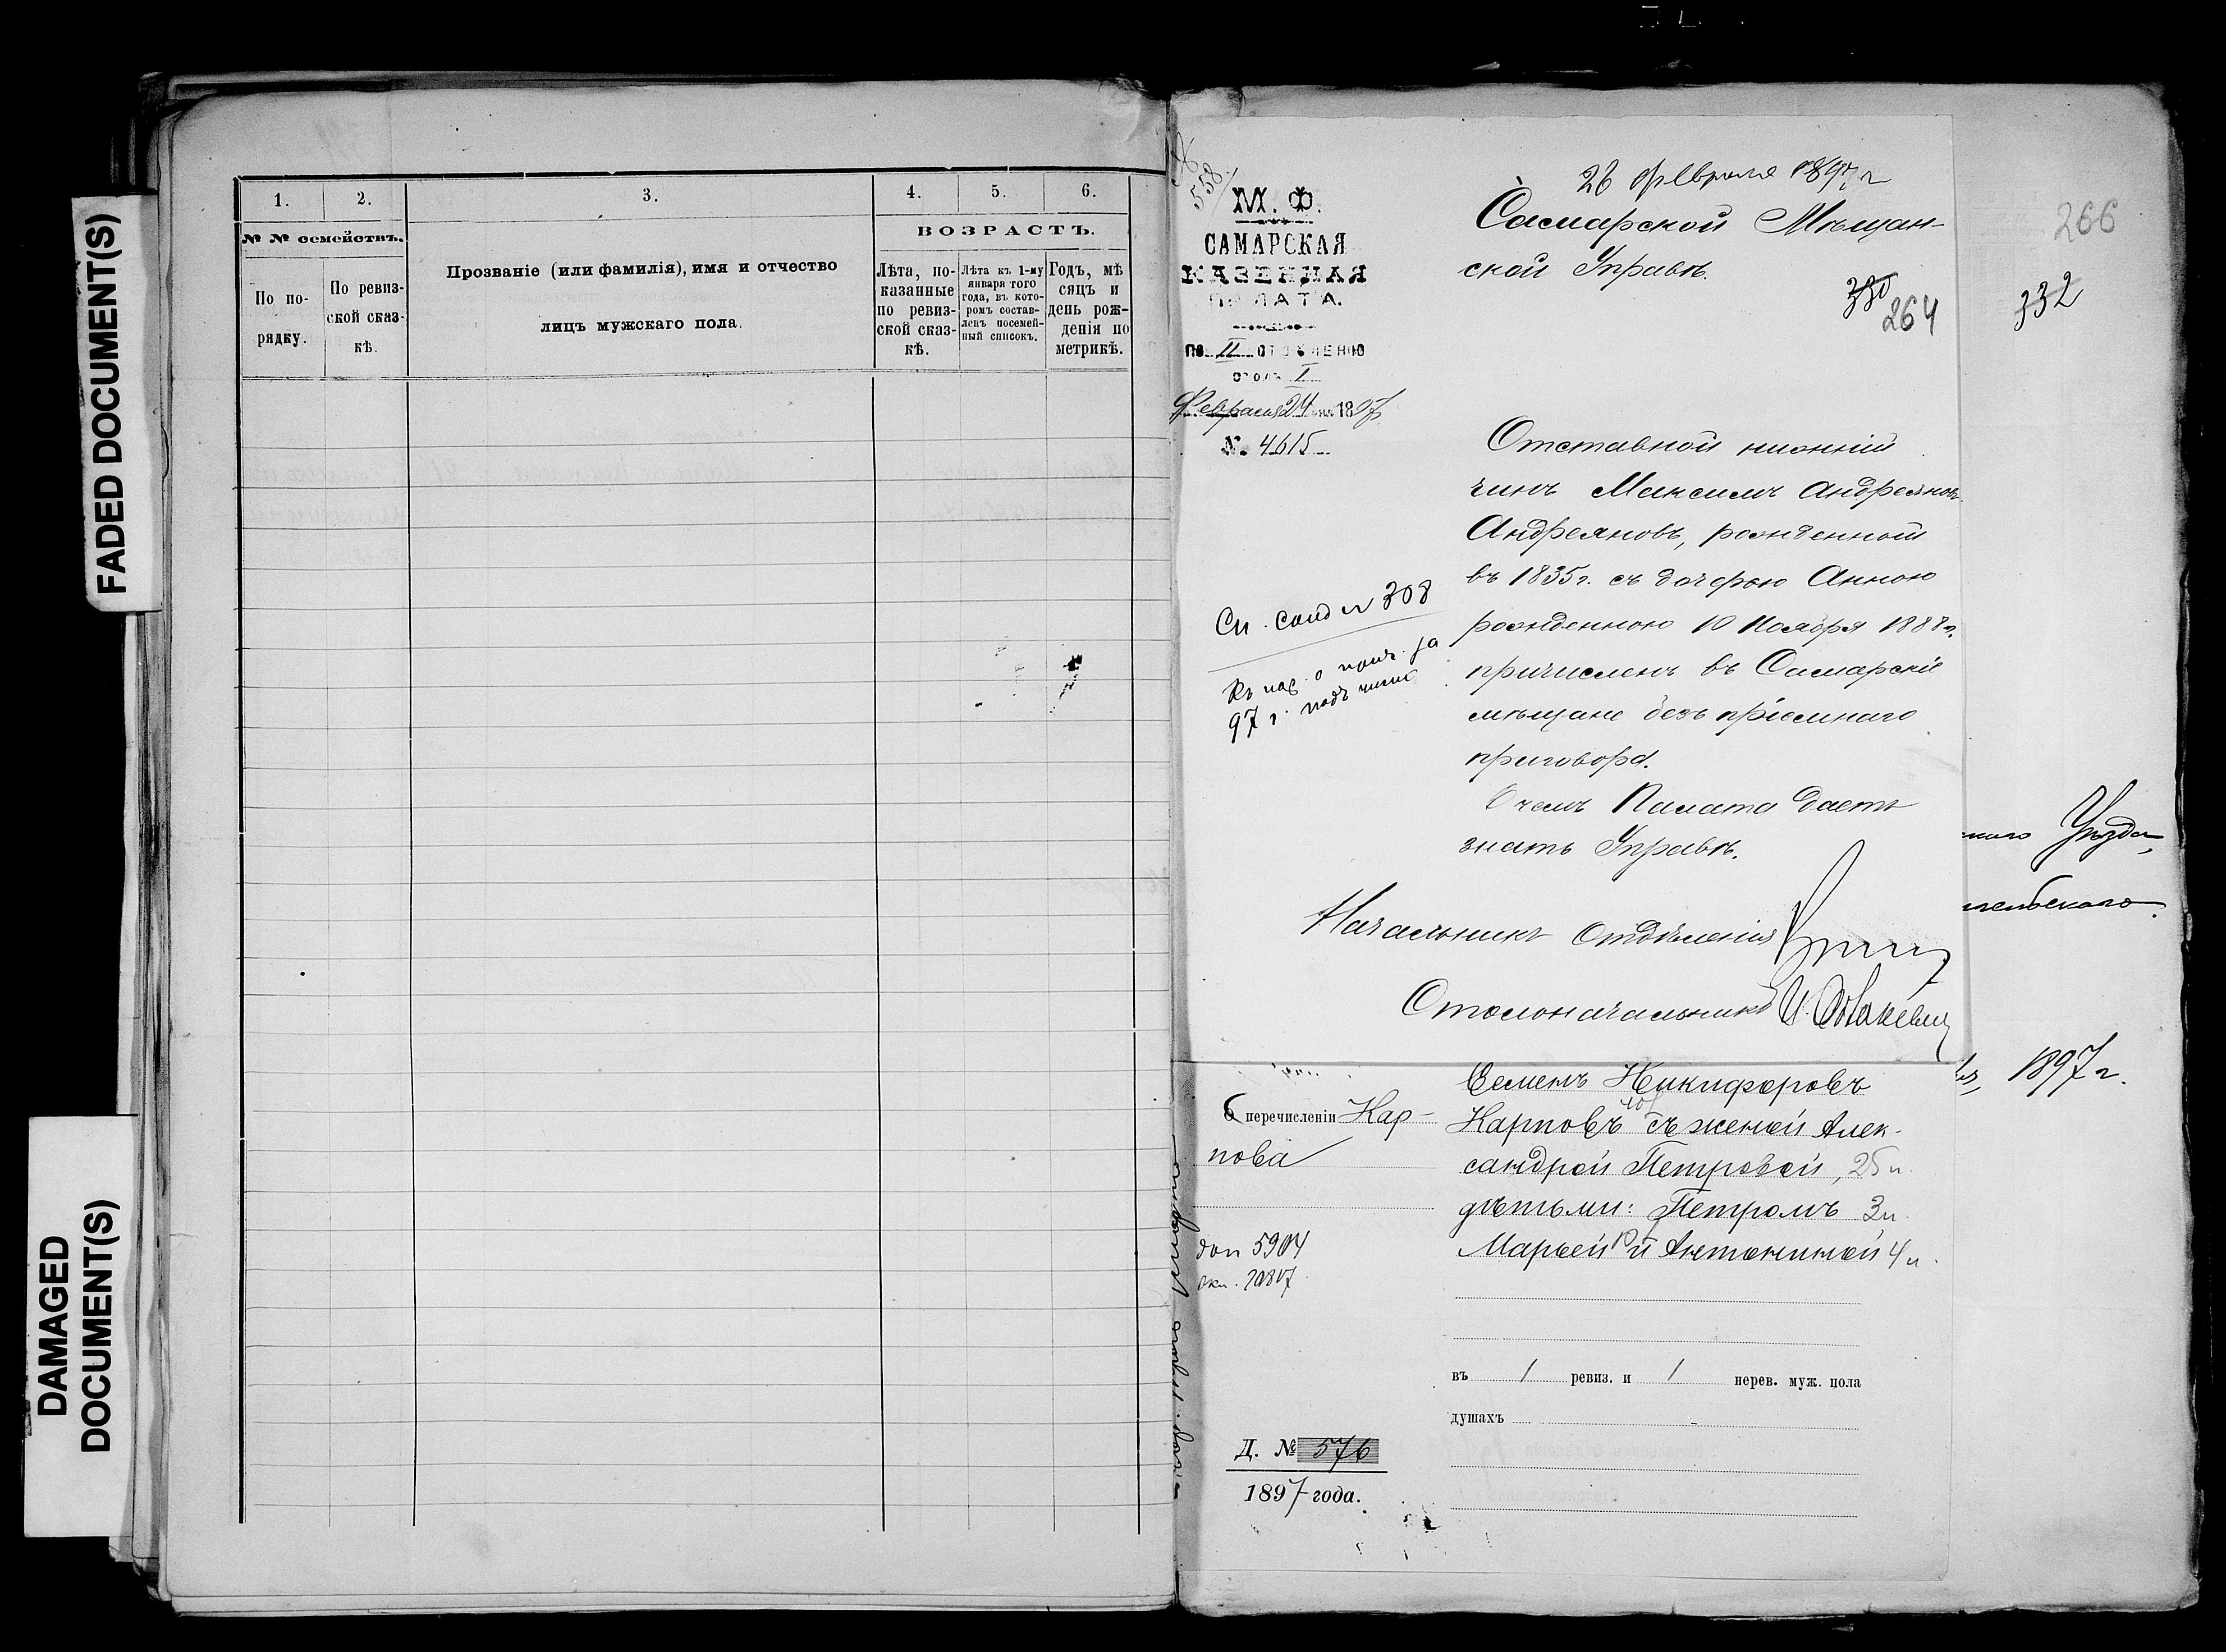 FADED DOCUMENT(S)
DAMAGED
DOCUMENT(S)
1.
2.
3.
4.
5.
6.
№ № семействъ.
ВОЗРАСТЪ.
По по-
рядку.
По ревиз-
ской сказ-
кѣ.
Прозваніе (или фамилія), имя и отчество
лицъ мужскаго пола.
Лѣта, по-
казанные
по ревиз-
ской сказ-
кѣ.
Лѣта къ 1-му
января того
года, въ кото-
ромъ состав-
ленъ посемей-
ный списокъ.
Годъ, мѣ
сяцъ и
день рож-
денія по
метрикѣ.
558
М. Ф.
САМАРСКАЯ
КАЗЕННАЯ
ПАЛАТА.
По II отдѣленію
столъ I
Февраля 24 дня 1897
№ 4615
26 февраля 1897 г
Самарской Мѣщан-
ской Управѣ.
330
264
266
332
Отставной нижній
чинъ Максимъ Андреяновъ
Андреяновъ, рожденной
въ 1835 г. съ дочерью Анною
рожденною 10 Ноября 1888 г.
причисленъ въ Самарскіе
мѣщане безъ пріемнаго
приговора.
О чемъ Палата даетъ
знать Управѣ.
Сп. 308
97 г.
Начальникъ Отдѣленія
Столоначальникъ
Уѣзда,
1897 г.
О перечисленіи Кар-
пова
Семенъ Никифоровъ
Карповъ съ женой Алек-
сандрой Петровой, 25 л.
дѣтьми: Петромъ 3 л.
Марьей и Антониной 4 л.
доп 5904
окл. 20807
въ 1 ревиз. и 1 перев. муж. пола
душахъ
Д. № 576
1897 года.